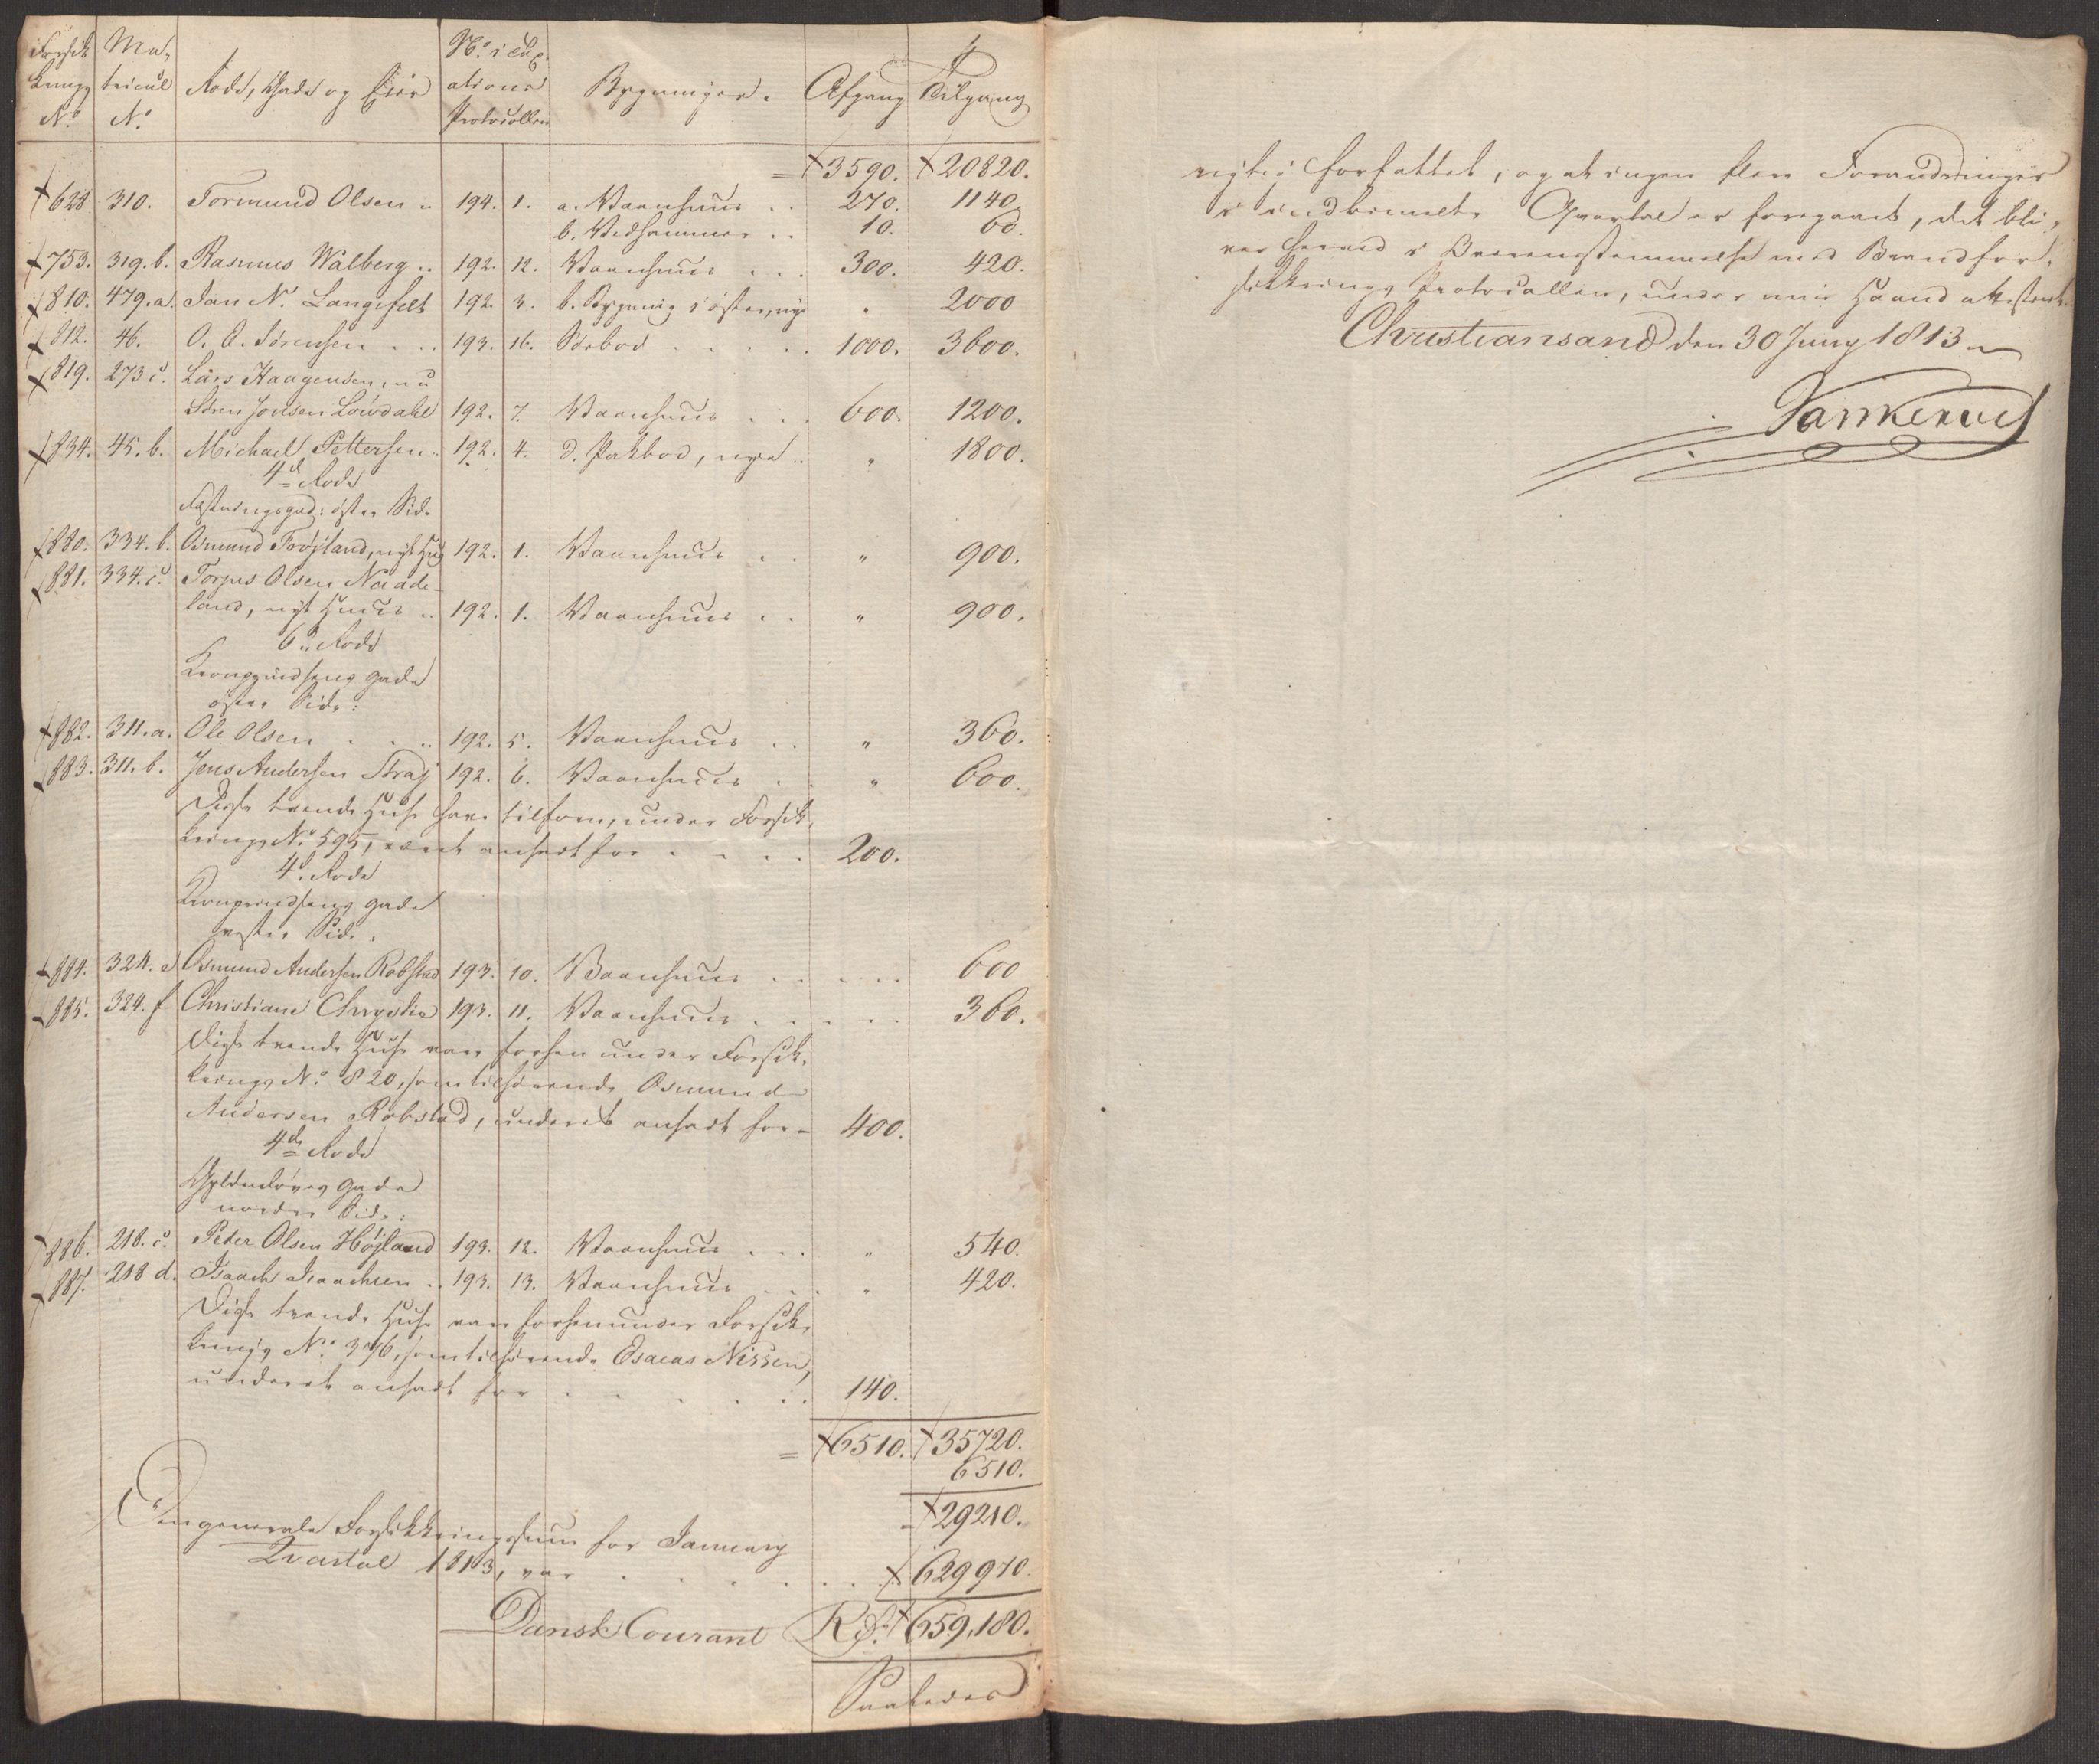 Forsik- Ma- No. i Tax-
krings tricul Rode, Gade og Eier ations Bygninger. Afgang Tilgang
No. No. Protocollen
= 3590. 20820.
628 310. Tormund Olsen 194. 1. a. Vaanhuus .. 270. 1140.
b. Vedkammer .. 10. 60.
753. 319.b. Rasmus Walberg .. 192. 12. Vaanhuus ... 300. 420.
810. 479.a. Jan N. Langefelt 192. 3. b. Bygning i øster, nye " 2000
812. 46. O. O. Sørensen ... 193. 16. Søebod ..... 1000. 3600.
819. 273 c. Lars Haagensen, nu
Sören Jonsen Lowdahl 192. 7. Vaanhuus ... 600. 1200.
834. 45.b. Michael Pettersen .. 192. 4. d. Pakbod, nye .. " 1800.
4de Rode
Festningsgad: øster Side
880. 334.b. Osmund Trøjland, nyt Huus 192. 1. Vaanhuus .. " 900.
881. 334.c. Torjus Olsen Naade-
land, nyt Huus .. 192. 1. Vaanhuus .. " 900.
6te Rode
Kronprindsens Gade
øster Side:
882. 311.a. Ole Olsen .... 192. 5. Vaanhuus .. " 360.
883. 311.b. Jens Andersen Straj 192. 6. Vaanhuus .. " 600.
Disse tvende Huse have tilforn, under Forsik-
krings No. 595, været ansadt for .... 200.
4de Rode
Kronprindsens Gade
vester Side.
884. 324.e Osmund Andersen Robstad 193. 10. Vaanhuus ..... 600
885. 324.f Christiane Chrystie 193. 11. Vaanhuus ..... 360.
Disse tvende Huse vare forhen under Forsik-
krings No. 820, som tilhørende Osmund
Andersen Robstad, underet ansadt for - 400.
4de Rode
Gyldenløves Gade
norder Side:
886. 218.c. Peter Olsen Højland 193. 12. Vaanhuus ... " 540.
887. 218 d. Isaach Isaachsen .. 193. 13. Vaanhuus ... " 420.
Disse tvende Huse vare forhen under Forsik-
krings No. 376, som tilhørende Esaias Nissen,
underet ansadt for ...... 140.
= 6510. 35720.
6510.
29210.
Den generale Forsikkringssum for January
Qvartal 1813, var ....... 629970.
Dansk Courant Rd. 659,180.
Saaledes
rigtig forfattet, og at ingen flere Forandringer
i indbemelte Qvartal er foregaaet, det bli-
ver herved i Overensstemmelse med Brandfor-
sikkrings Protocollen, under min Haand attesteret.
Christiansand den 30 Juny 1813.